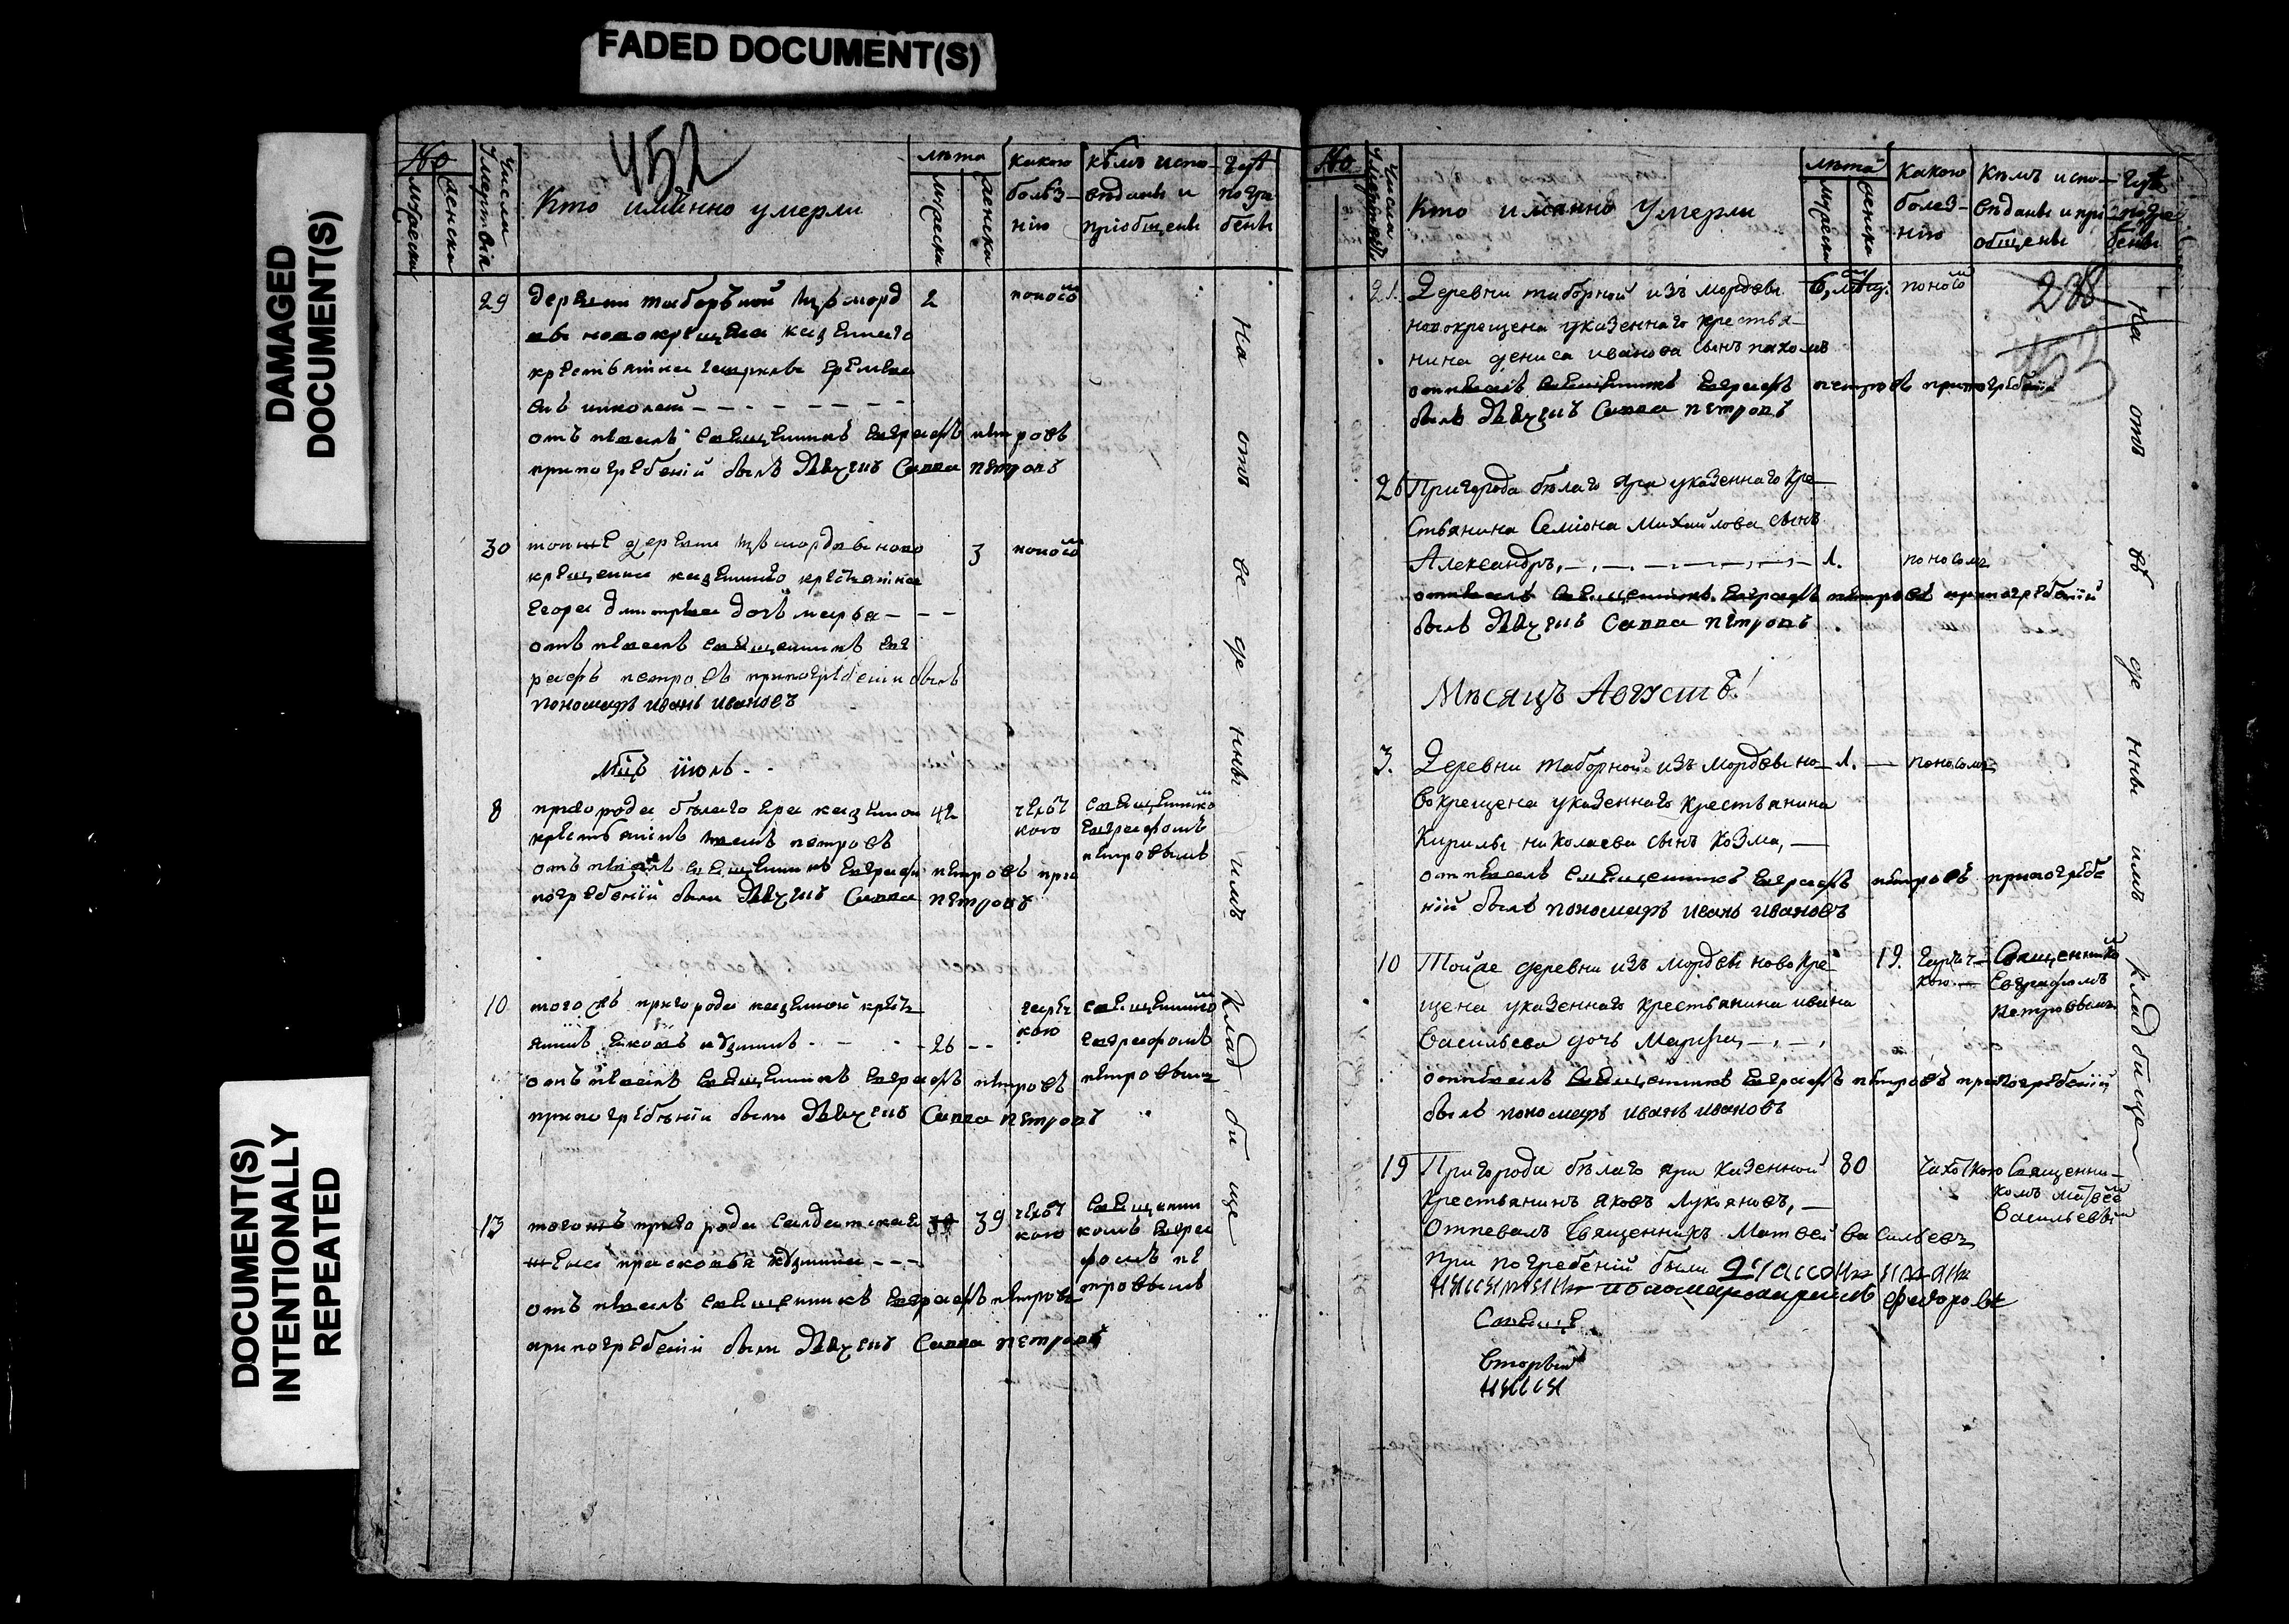 FADED DOCUMENT(S)
DAMAGED
DOCUMENT(S)
DOCUMENT(S)
INTENTIONALLY
REPEATED
452
No
мужеска
женска
Числа
Умертвія
Кто имянно умерли
лѣта
мужеска
женска
какою
болѣз-
нію
кѣмъ испо-
вѣданы и
пріобщены
гдѣ
погре
бены
29 деревни таборъной изъ морд 2 поносо
вы новокрещена казеннаго
крестьянина
сынъ николай
отъ певалъ священникъ Евграфъ петровъ
припогребеніи былъ дьячекъ Савва петровъ
30 тоиже деревни изъ мордвы ново 3 поносо
крещенна казеннаго крестьянина
егора дмитриева дочь марфа
отъ певалъ священникъ Евг
рафъ петровъ припогребении былъ
пономарь иванъ ивановъ
Мцъ июль
8 пригорода бѣлаго яра казенной 42
крестьянинъ петровъ
отъ певалъ священникъ Евграфъ петровъ при
погребеніи были дьячекъ Савва петровъ
чехот
кою
священнико
Евграфомъ
петровымъ
10 тогожъ пригорода казенной крест
янинъ кузминъ 26
отъ певалъ священникъ Евграфъ петровъ
припогребѣніи были дьячекъ Савва петровъ
кою
священнико
Евграфомъ
петровымъ
13 тогожъ пригорода салдатская 39
жена прасковья кузмина
отъ певалъ священникъ Евграфъ петровъ
припогребеніи были дьячекъ Савва петровъ
чехот
кою
священни
комъ Евгра
фомъ пе
тровымъ
на отве де нны имъ клад би ще
No
Числа
Кто имянно Умерли
лѣта
мужеска
женска
какою
болез-
нію
Кѣмъ испо-
вѣданы и прі
общены
гдѣ
погре
бены
238
453
21. Деревни таборной изъ мордвы 6, поносо
новокрещена указеннаго крестья-
нина дениса иванова сынъ пахомъ
отпевалъ священникъ Евграфъ петровъ припогребеніи
былъ дьячекъ Савва петровъ
26 Пригорода бѣлаго Яра указеннаго Кре-
стьянина Семіона Михайлова сынъ
Александръ, 1. поносомъ
отпевалъ священникъ Евграфъ петровъ припогребеніи
былъ дьячекъ Савва петровъ
Мѣсяцъ Августъ!
3. Деревни таборной изъ мордвы но- 1. поносомъ
вокрещена указеннаго крестьянина
Кирилы николаева сынъ козма,
отпевалъ священникъ Евграфъ петровъ припогребе
ніи былъ пономарь иванъ ивановъ
10 Тойже деревни изъ мордвы новокре- 19.
щена указеннаго крестьянина ивана
васильева дочь Марфа,
отпевалъ священникъ Евграфъ петровъ припогребеніи
былъ пономарь иванъ ивановъ
кою
Священнико
Евграфомъ
Петровымъ
19 Пригорода бѣлаго яра казенной 80 чахоткою
крестьянинъ яковъ Лукяновъ,
Отпевалъ Священникъ Матвей васильевъ
при погребеніи были
федоровъ
Священни-
комъ матвее
васильевы
вторый
на отъ ве де нны имъ кладбище